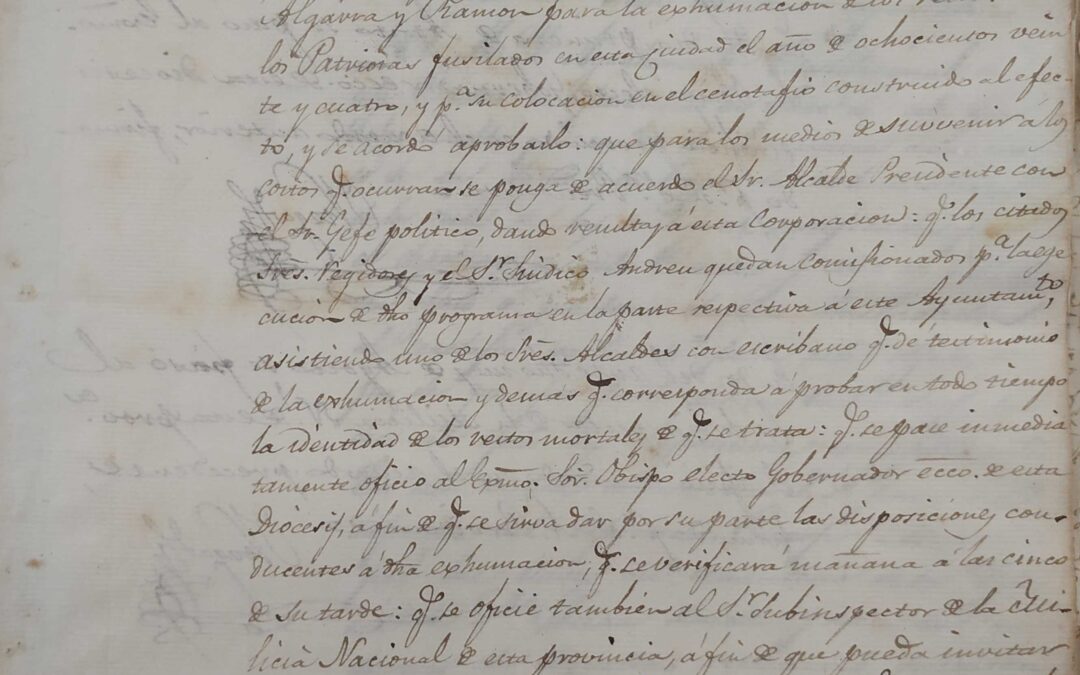 Algarra y Ramon para la exhumacion de los
los Patriotas fusilados en esta Ciudad el año de ochocientos vein
te y cuatro, y p.ª su colocacion en el cenotafio construido al efec-
to, y se acordó aprobarlo: que para los medios de subvenir á los
costos q.e ocurran se ponga de acuerdo el Sr. Alcalde Presidente con
el Sr. Gefe politico, dando resulta á esta Corporacion: q.e los citados
Sres. Regidores y el S.r Sindico Andreu quedan comisionados p.ª la ege
cucion de dho programa en la parte respectiva á este Ayuntam.to,
asistiendo uno de los Sres. Alcaldes con escribano q.e dé testimonio
de la exhumacion y demás q.e corresponda á probar en todo tiempo
la identidad de los restos mortales de q.e se trata: q.e se pase inmedia
tamente oficio al Exmo. Sor. Obispo electo Gobernador ecco. de esta
Diócesis, á fin de q.e se sirva dar por su parte las disposiciones con-
ducentes á dha exhumacion, q.e se verificará mañana á las cinco
de su tarde: q.e se oficie tambien al S.r Subinspector de la Mi-
licia Nacional de esta provincia, á fin de que pueda invitar